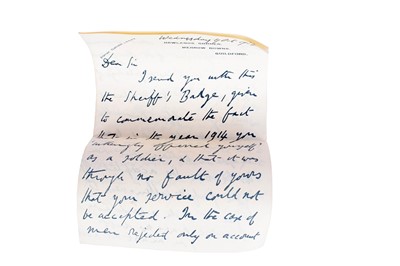 Wednesday
Dear Sir
I send you with this
the Sheriff's Badge, given
to commemorate the fact
that in the year 1914 you
willingly offered yourself
as a soldier, & that it was
through no fault of yours
that your service could not
be accepted. In the case of
men rejected only on account